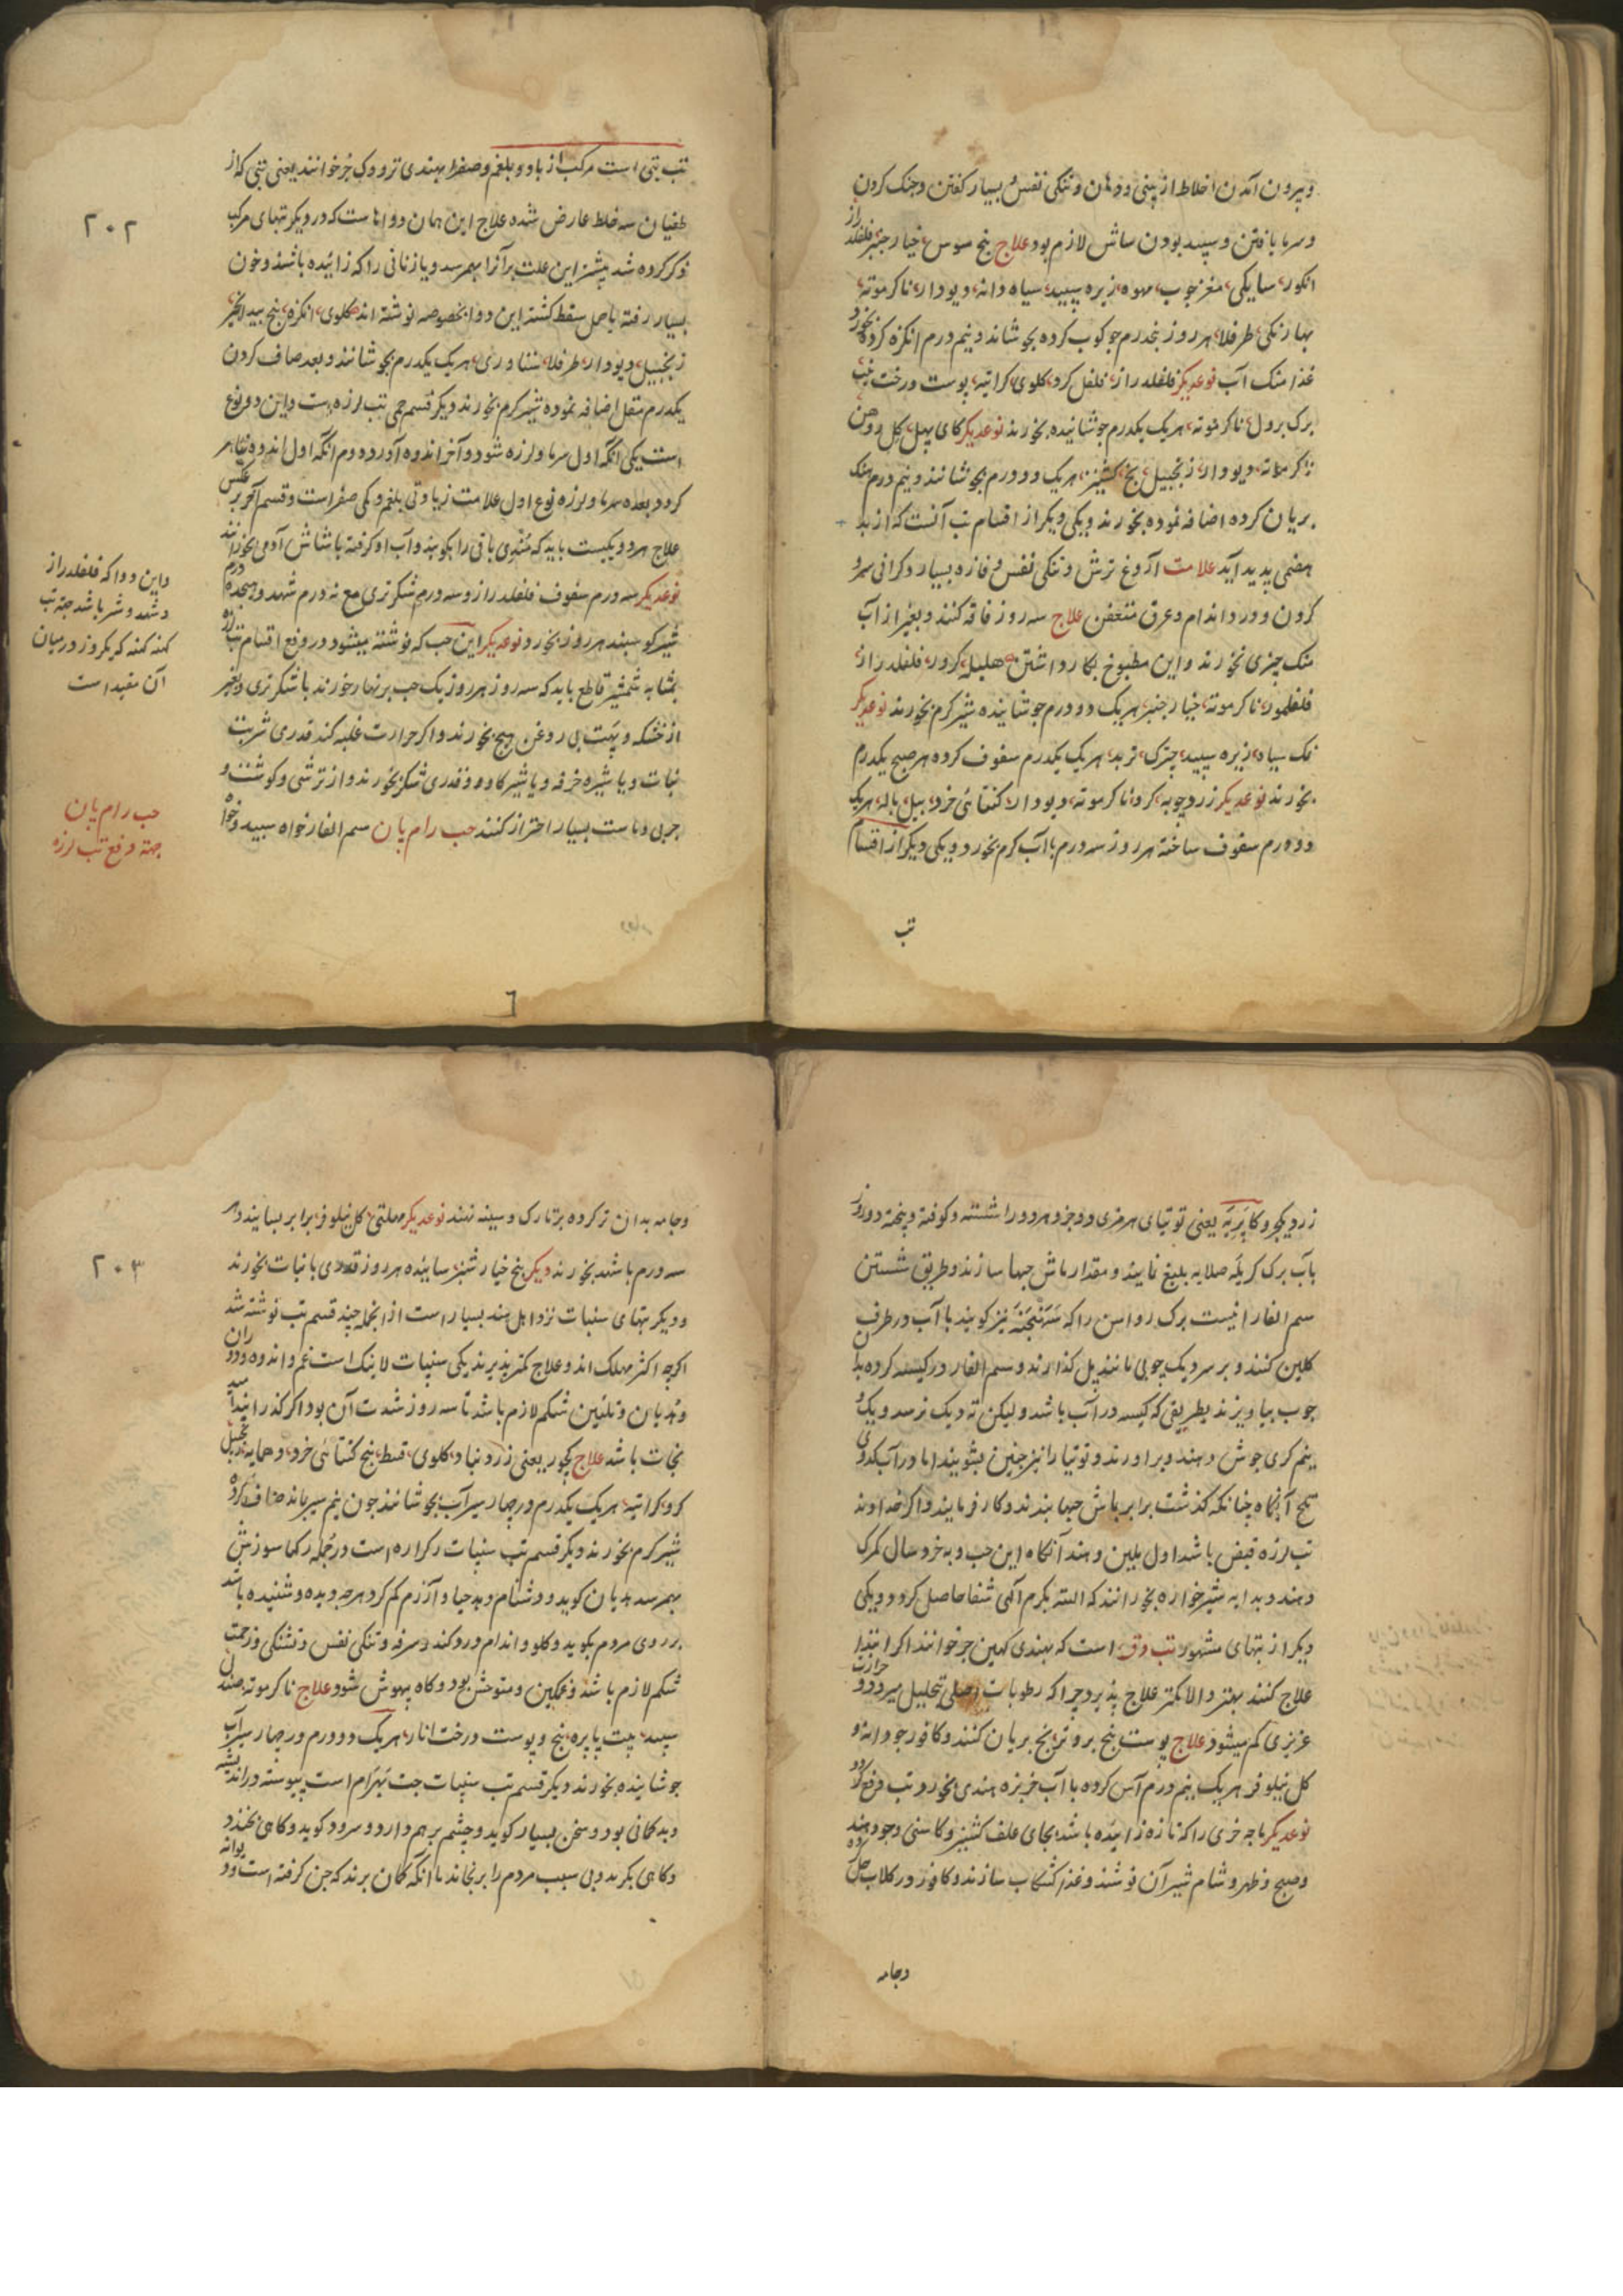 و بیرون آمدن اخلاط از بینی و دهان و تنکی نفس و بسیار کفتن و جنک کردن
و سرما یافتن و سپید بودن شاش لازم بود علاج بیخ سوس خیار جنبر فلفلدراز
انکور سایکی مغز جوب مهوه زیره سپید سیاه دانه دیودار ناکرموته
بهارنکی طرفلا هر روز پنجدرم جوکوب کرده بجوشاند و نیم درم انکزه کرده بخورد
غذا منک آب نوعدیکر فلفلدراز فلفل کرد کلوی کراتیه پوست درخت نیب
برک برول ناکرموته هریک یکدرم جوشانیده بخورند نوعدیکر کای پهل کل دوهن
ناکرموته دیودار زنجبیل بیخ کشنیز هریک دو درم بجوشانند و نیم درم منک
بریان کرده اضافه نموده بخورند و یکی دیکر از اقسام تب آنست که از بد
هضمی پدید آید علامت آروغ ترش و تنکی نفس و فازه بسیار و کرانی سر و
کردن و درد اندام و عرق متعفن علاج سه روز فاقه کنند و بغیر از آب
منک چیزی نخورند و این مطبوخ بکار داشتن هلیله کرور فلفلدراز
فلفلمور ناکرموته خیارجنبر هریک دو درم جوشانیده شیر کرم بخورند نوعدیکر
نمک سیاه زیره سپید چترک تربد هریک یکدرم سفوف کرده هر صبح یکدرم
بخورند نوعدیکر زردچوبه کرو ناکرموته دیودار کنتائی خرد بیل باله هریک
دو درم سفوف ساخته هر روز سه درم با آب کرم بخورد و یکی دیکر از اقسام
تب
۲۰۲
تب تبی است مرکب از باد و بلغم و صفرا بهندی تردوک جر خوانند یعنی تبی که از
طغیان سه خلط عارض شده علاج این همان دواهاست که در دیکر تبهای مرکب
ذکر کرده شد بیشتر این علت برآنرا بهم رسد و یا زنانی را که زائیده باشند و خون
بسیار رفته یا حمل سقط کشته این دوا بخصوصه نوشته اند کلوی انکزه بیخ بید انجیر
زنجبیل دیودار طرفلا شناوری هریک یکدرم بجوشانند و بعد صاف کردن
یکدرم مقل اضافه نموده شیر کرم بخورند و دیکر قسم حمی تب لرزه است و این دو نوع
است یکی آنکه اول سرما و لرزه شود و آخر اندوه آورد و دوم آنکه اول اندوه ظاهر
کردد بعده سرما و لرزه نوع اول علامت زیادتی بلغم و کمی صفراست و قسم آخر بر عکس
علاج هر دو یکیست باید که مندی باتی را بکوبند و آب او کرفته با شاش آدمی بخورانند
نوعدیکر سه درم سفوف فلفلدراز و سه درم شکر تری مع نه درم شهد و هیجده درم
شیر کوسپند هر روز بخورد نوعدیکر این حب که نوشته میشود در دفع اقسام تب لرزه
بمثابه شمشیر قاطع باید که سه روز هر روز یک حب بر نهار خورند با شکر تری و بغیر
از خشکه و پیت بی روغن هیچ نخورند و اکر حرارت غلبه کند قدری شربت
نبات و یا شیره خرفه و یا شیر کاو و قدری شکر بخورند و از ترشی و کوشت و
چربی و ماست بسیار احتراز کنند حب رام بان سم الفار خواه سپید و خواه
واین دوا که فلفلدراز
و شهد و شیر باشد جهته تب
کهنه که یکروز در میان
آن مفید است
حب رام بان
جهته دفع تب لرزه
زرد یکجزو کاپریه یعنی توتیای هرمزی دو جزو هر دو را شسته و کوفته و بیخته دو روز
بآب برک کریله صلایه بلیغ نمایند و مقدار ماش حبها سازند و طریق شستن
سم الفار اینست برک رواسن را که سنبجنه نیز کویند با آب در ظرف
کلین کنند و بر سر دیک چوبی مانند پل کذارند و سم الفار در کیسه کرده بدان
چوب بیاویزند بطریقی که کیسه در آب باشد و لیکن ته دیک نرسد و یک و
نیم کری جوش دهند و برآورند و توتیا را نیز چنین بشویند اما در آب کدوی
تلخ آنکاه چنانکه کذشت برابر ماش حبها بندند و کار فرمایند و اکر خداوند
تب لرزه قبض باشد اول ملین دهند آنکاه این حب و به خرد سال کمترک
دهند و بدایه شیر خواره بخورانند که البته بکرم آلهی شفا حاصل کردد و یکی
دیکر از تبهای مشهور تب دق است که بهندی کهین جر خوانند اکر ابتدا
علاج کنند بهتر و الا کمتر علاج پذیرد چرا که رطوبات اصلی تحلیل میرود و حرارت
غریزی کم میشود علاج پوست بیخ بر و ترنج بریان کنند و کافور جودانه و
کل نیلوفر هریک نیم درم آس کرده با آب خربزه هندی بخورد تب دفع کردد
نوعدیکر ماجه خری را که تازه زائیده باشد بجای علف کشنیز و کاسنی و جو دهند
و صبح و ظهر و شام شیر آن نوشند و غذا کشکاب سازند و کافور در کلاب حل کرده
و جامه
۲۰۳
و جامه بدان تر کرده بر تارک و سینه نهند نوعدیکر مهلتی کل نیلوفر برابر بسایند و هر
سه درم باشد بخورند دیکر بیخ خیار شنبر سائیده هر روز قدری با نبات بخورند
و دیکر تبهای سنپات نزد اهل هند بسیار است از انجمله چند قسم تب نوشته شد
اکرچه اکثر مهلک اند و علاج کمتر پذیرند یکی سنپات لانیک است غم و اندوه و دوران
و هذیان و تلئین شکم لازم باشد تا سه روز شدت آن بود اکر کذرانید امید
نجات باشد علاج کچور یعنی زرونباد کلوی قسط بیخ کنتائی خرد دهمایه زنجبیل
کرو کراتیه هریک یکدرم در چهار سیر آب بجوشانند چون نیم سیر ماند صاف کرده
شیر کرم بخورند دیکر قسم تب سنپات رکراره است در جمله رکها سوزش
بهم رسد هذیان کوید و دشنام دهد حیا و آزرم کم کردد هرچه دیده و شنیده باشد
بر روی مردم بکوید و کلو و اندام درد کند و سرفه و تنکی نفس و تشنکی و زحمت
شکم لازم باشد و غمکین و متوحش بود و کاه بیهوش شود علاج ناکرموته صندل
سپید پت پاپره بیخ و پوست درخت انار هریک دو درم در چهار سیر آب
جوشانیده بخورند دیکر قسم تب سنپات چت بهرام است پیوسته در اندیشه
و بد کمانی بود و سخن بسیار کوید و چشم بر هم دارد و سرود کوید و کاهی بخندد
و کاهی بکرید و بی سبب مردم را برنجاند تا آنکه کمان برند که جن کرفته است و دیوانه